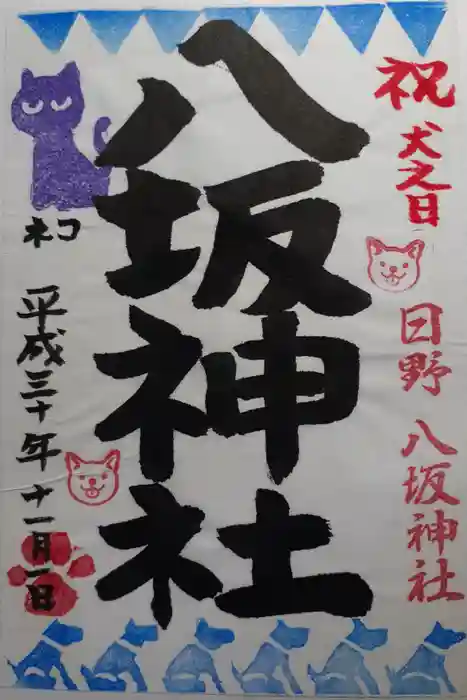 祝 犬之日
日野 八坂神社
八坂神社
ネコ
平成三十年十一月一日